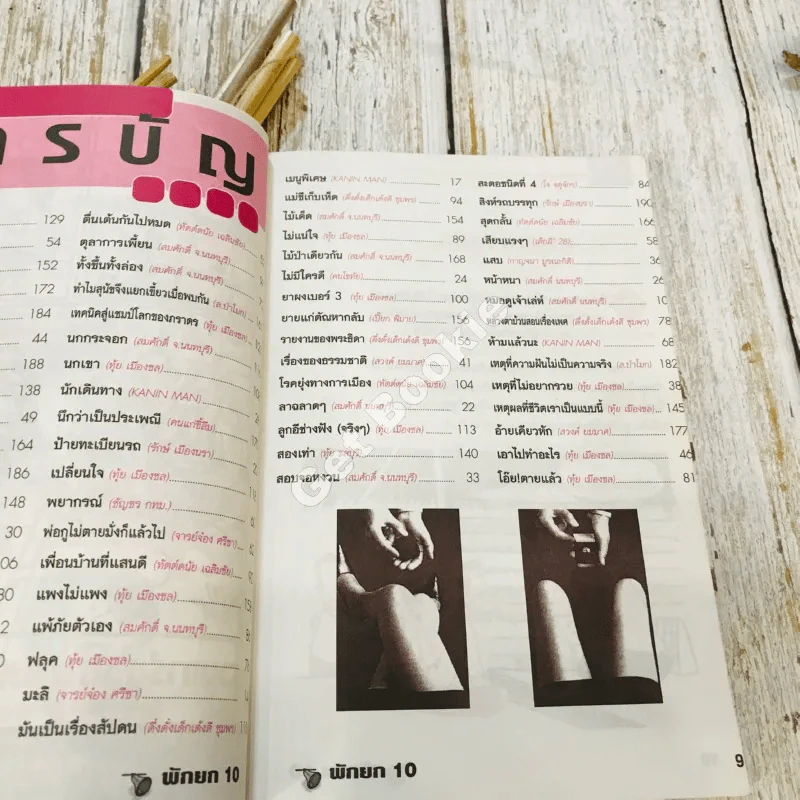 ารบัญ
129
54
152
172
184
44
188
138
49
164
186
148
30
ตื่นเต้นกันไปหมด (ทัตต์ดนัย เฉลิมชัย)
ตุลาการเพี้ยน (สมศักดิ์ จ.นนทบุรี)
ทั้งขึ้นทั้งล่อง (สมศักดิ์ จ.นนทบุรี)
ทำไมสุนัขจึงแยกเขี้ยวเมื่อพบกัน (ล.ป่าโมก)
เทคนิคสู่แชมป์โลกของภราดร (ทุ้ย เมืองชล)
นกกระจอก (สมศักดิ์ จ.นนทบุรี)
นกเขา (ทุ้ย เมืองชล)
นักเดินทาง (KANIN MAN)
นึกว่าเป็นประเพณี (คนแก่ขี้ลืม)
ป้ายทะเบียนรถ (รักษ์ เมืองนรา)
เปลี่ยนใจ (ทุ้ย เมืองชล)
พยากรณ์ (ชัญชร กทม.)
พ่อกูไม่ตายมั่งก็แล้วไป (จารย์จ๋อง ศรีชา)
เพื่อนบ้านที่แสนดี (ทัตต์ดนัย เฉลิมชัย)
แพงไม่แพง (ทุ้ย เมืองชล)
แพ้ภัยตัวเอง (สมศักดิ์ จ.นนทบุรี)
ฟลุค (ทุ้ย เมืองชล)
มะลิ (จารย์จ๋อง ศรีชา)
มันเป็นเรื่องสัปดน (ดึ๋งดั๋งเด็กเด้งดี ชุมพร)
พักยก 10
เมนูพิเศษ (KANIN MAN) 17
แม่ชีเก็บเห็ด 94
ไม้เด็ด (สมศักดิ์ จ.นนทบุรี) 154
ไม่แน่ใจ (ทุ้ย เมืองชล) 89
ไม้ป่าเดียวกัน (สมศักดิ์ จ.นนทบุรี) 168
ไม่มีใครดี (คนไซทัย) 24
ยาผงเบอร์ 3 (ทุ้ย เมืองชล) 100
ยายแก่ตัณหากลับ (เปี๊ยก พิมาย)
รายงานของพระธิดา (ดึ๋งดั๋งเด็กเด้งดี ชุมพร) 156
เรื่องของธรรมชาติ (สวงค์ ยมมาค) 41
โรคยุ่งทางการเมือง (ทัตต์ดนัย เฉลิมชัย) 104
ลาฉลาดๆ (สมศักดิ์ 22
ลูกอีช่างฟัง (จริงๆ) (ทุ้ย เมืองชล) 113
สองเท่า (ทุ้ย 140
สอบจอหงวน (สมศักดิ์ จ.นนทบุรี) 33
สะดอชนิดที่ 4 (ใจ จตุจักร) 84
สิงห์รถบรรทุก (รักษ์ เมืองนรา) 190
สุดกลั้น (ทัตต์ดนัย เฉลิมชัย) 166
เสียบแรงๆ 58
แสบ (กาญจนา บูรณะกิติ) 36
หน้าหนา (สมศักดิ์ นนทบุรี)
หมอดูเจ้าเล่ห์ (สมศักดิ์ นนทบุรี)
หลวงตาบ้านสอนเรื่องเพศ (ดึ๋งดั๋งเด็กเด้งดี ชุมพร) 78
ห้ามแล้วนะ (KANIN MAN) 68
เหตุที่ความฝันไม่เป็นความจริง (ล.ป่าโมก) 182
เหตุที่ไม่อยากรวย (ทุ้ย เมืองชล) 38
เหตุผลที่ชีวิตเราเป็นแบบนี้ (ทุ้ย เมืองชล) 145
อ้ายเดียวหัก (สวงค์ ยมมาค) 177
เอาไปทำอะไร (ทุ้ย เมืองชล) 46
โอ๊ย!ตายแล้ว (ทุ้ย เมืองชล) 81
Get Bookie
พักยก 10
9